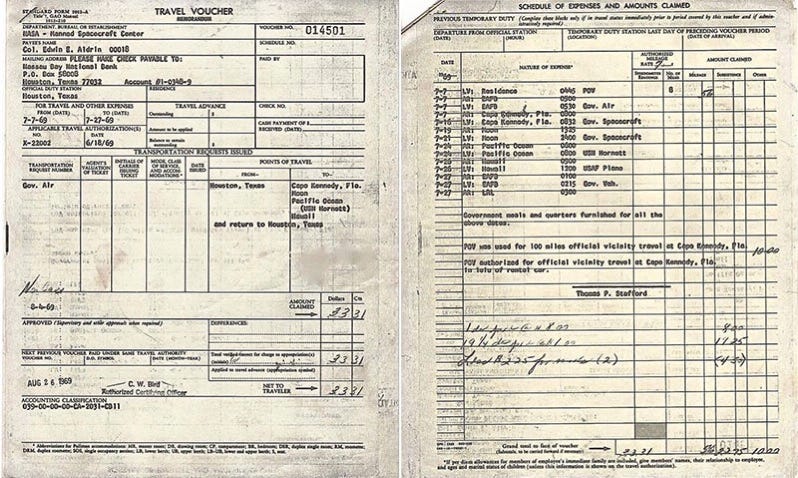 STANDARD FORM 1012-A
Title 7, GAO Manual
1012-210
TRAVEL VOUCHER
MEMORANDUM
DEPARTMENT, BUREAU OR ESTABLISHMENT
NASA - Manned Spacecraft Center
VOUCHER NO.
014501
PAYEE'S NAME
Col. Edwin E. Aldrin 00018
SCHEDULE NO.
MAILING ADDRESS PLEASE MAKE CHECK PAYABLE TO:
Nassau Bay National Bank
P.O. Box 58008
Houston, Texas 77032 Account #1-0348-9
PAID BY
OFFICIAL DUTY STATION
RESIDENCE
Houston, Texas
FOR TRAVEL AND OTHER EXPENSES
TRAVEL ADVANCE
CHECK NO.
FROM (DATE)
TO (DATE)
Outstanding $
7-7-69
7-27-69
CASH PAYMENT OF $
RECEIVED (DATE)
APPLICABLE TRAVEL AUTHORIZATION(S)
Amount to be applied
NO.
DATE
Balance to remain outstanding $
X-22002
6/18/69
TRANSPORTATION REQUESTS ISSUED
TRANSPORTATION REQUEST NUMBER
AGENT'S VALUATION OF TICKET
INITIALS OF CARRIER ISSUING TICKET
MODE, CLASS OF SERVICE, AND ACCOMMODATIONS*
DATE ISSUED
POINTS OF TRAVEL
FROM—
TO—
Gov. Air
Houston, Texas
Cape Kennedy, Fla.
Moon
Pacific Ocean
(USN Hornett)
Hawaii
and return to Houston, Texas
8-4-69
AMOUNT CLAIMED
Dollars Cts
33 31
APPROVED (Supervisory and other approvals when required)
DIFFERENCES:
NEXT PREVIOUS VOUCHER PAID UNDER SAME TRAVEL AUTHORITY
VOUCHER NO.
D.O. SYMBOL
DATE (MONTH-YEAR)
Total verified correct for charge to appropriation(s)
33 31
Applied to travel advance (appropriation symbol)
AUG 26 1969
C. W. Bird
Authorized Certifying Officer
NET TO TRAVELER
33 31
ACCOUNTING CLASSIFICATION
039-00-00-00-CA-2031-CB11
* Abbreviations for Pullman accommodations: MR, master room; DR, drawing room; CP, compartment; BR, bedroom; DSR, duplex single room; RM, roomette;
DRM, duplex roomette; SOS, single occupancy section; LB, lower berth; UB, upper berth; LB-UB, lower and upper berth; S, seat.
SCHEDULE OF EXPENSES AND AMOUNTS CLAIMED
PREVIOUS TEMPORARY DUTY (Complete these blocks only if in travel status immediately prior to period covered by this voucher and if administratively required)
DEPARTURE FROM OFFICIAL STATION
TEMPORARY DUTY STATION
LAST DAY OF PRECEDING VOUCHER PERIOD
(DATE)
(HOUR)
(LOCATION)
(DATE OF ARRIVAL)
DATE
NATURE OF EXPENSE*
AUTHORIZED MILEAGE RATE
AMOUNT CLAIMED
'69
SPEEDOMETER READINGS
NO. OF MILES
MILEAGE
SUBSISTENCE
OTHER
7-7 LV: Residence 0445 POV 8 56
7-7 AR: EAFB 0500
7-7 LV: EAFB 0530 Gov. Air
7-7 AR: Cape Kennedy, Fla. 0800
7-16 LV: Cape Kennedy, Fla. 0832 Gov. Spacecraft
7-19 AR: Moon 1325
LV: Moon 2400 Gov. Spacecraft
7-24 AR: Pacific Ocean
7-24 LV: Pacific Ocean USN Hornett
AR: Hawaii
LV: Hawaii 1200 USAF Plane
7-27 AR: EAFB 0100
7-27 LV: EAFB 0215 Gov. Veh.
7-27 AR: LRL 0300
Government meals and quarters furnished for all the
above dates.
POV was used for 100 miles official vicinity travel at Cape Kennedy, Fla. 10.00
POV authorized for official vicinity travel at Cape Kennedy, Fla.
in leiu of rental car.
Thomas P. Stafford
8.00
(2)
Grand total to face of voucher
(Subtotals, to be carried forward if necessary)
33 31
10.00
*If per diem allowances for members of employee's immediate family are included, give members' names, their relationship to employee,
and ages and marital status of children (unless this information is shown on the travel authorization).